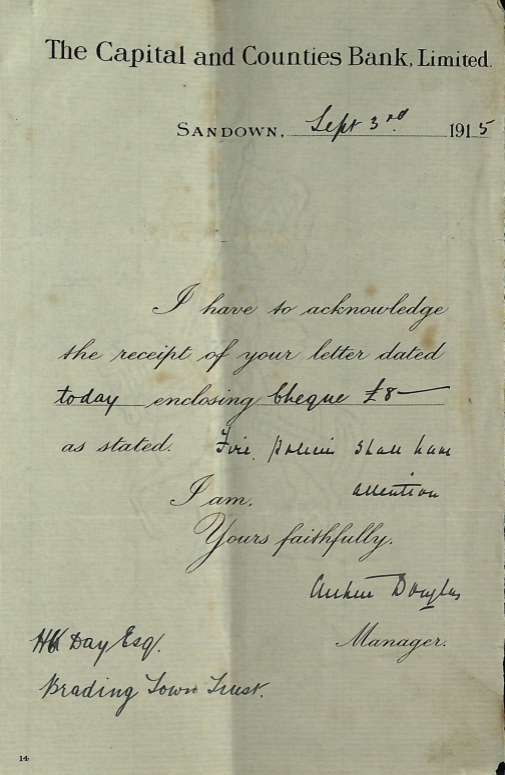 The Capital and Counties Bank, Limited.
Sandown, Sept 3rd 1915
I have to acknowledge
the receipt of your letter dated
today enclosing Cheque £8—
as stated. Fire policies shall have
attention
I am,
Yours faithfully,
Arthur Douglas
Manager.
HK Day Esq.
Brading Town Trust.
14